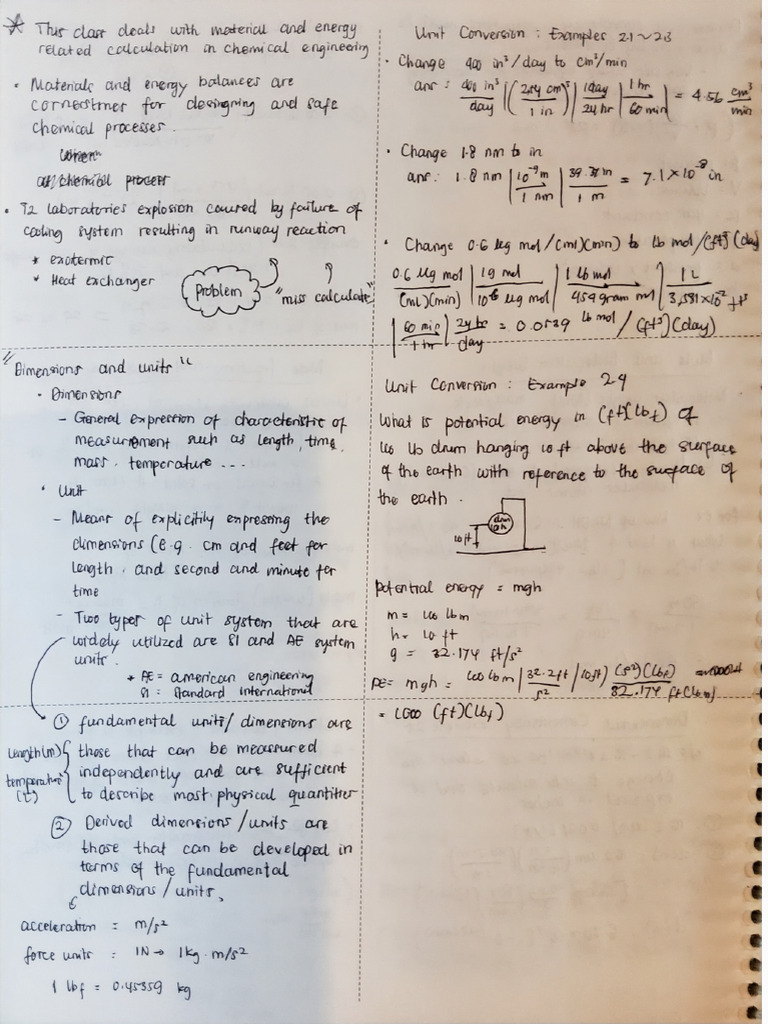 * This class deals with material and energy
related calculation in chemical engineering
• Materials and energy balances are
cornerstoner for designing and safe
chemical processes.
chemical process
• T2 laboratories explosion caused by failure of
cooling system resulting in runway reaction
* exotermic
* Heat exchanger
Problem
"miss calculate"
"Dimensions and units"
• Dimensions
- General expression of characteristic of
measurement such as length, time,
mass, temperature ...
• Unit
- Means of explicitily expressing the
dimensions (e.g. cm and feet for
length, and second and minute for
time
- Two types of unit system that are
widely utilized are SI and AE system
units.
* AE = american engineering
SI : Standard International
① fundamental units/dimensions are
those that can be measured
independently and are sufficient
to describe most physical quantities
Length(m)
temperature
(t)
② Derived dimensions/units are
those that can be developed in
terms of the fundamental
dimensions/units,
acceleration = m/s²
force units = 1N → 1kg.m/s²
1 lbf = 0.45359 kg
Unit Conversion : Examples 2.1~2.3
• Change 400 in³/day to cm³/min
ans : 400 in³/day |(2.54 cm/1 in)³| 1day/24 hr | 1 hr/60 min | = 4.56 cm³/min
• Change 1.8 nm to in
ans : 1.8 nm | 10⁻⁹ m/1 nm | 39.37 in/1 m = 7.1 × 10⁻⁸ in
• Change 0.6 μg mol/(ml)(min) to lb mol/(ft³)(day)
0.6 μg mol/(mL)(min) | 1g mol/10⁶ μg mol | 1 lb mol/454 gram mol | 1 L/3,531×10⁻² ft³
| 60 min/1 hr | 24 hr/day = 0.0539 lb mol/(ft³)(day)
Unit Conversion : Example 2.4
What is potential energy in (ft)(lbf) of
100 lb drum hanging 10 ft above the surface
of the earth with reference to the surface of
the earth.
drum
10 ft
potential energy = mgh
m = 100 lbm
h = 10 ft
g = 32.174 ft/s²
PE = mgh = 100 lbm | 32.2ft/s² | 10ft | (s²)(lbf)/32.174 ft(lbm)
= 1000 (ft)(lbf)